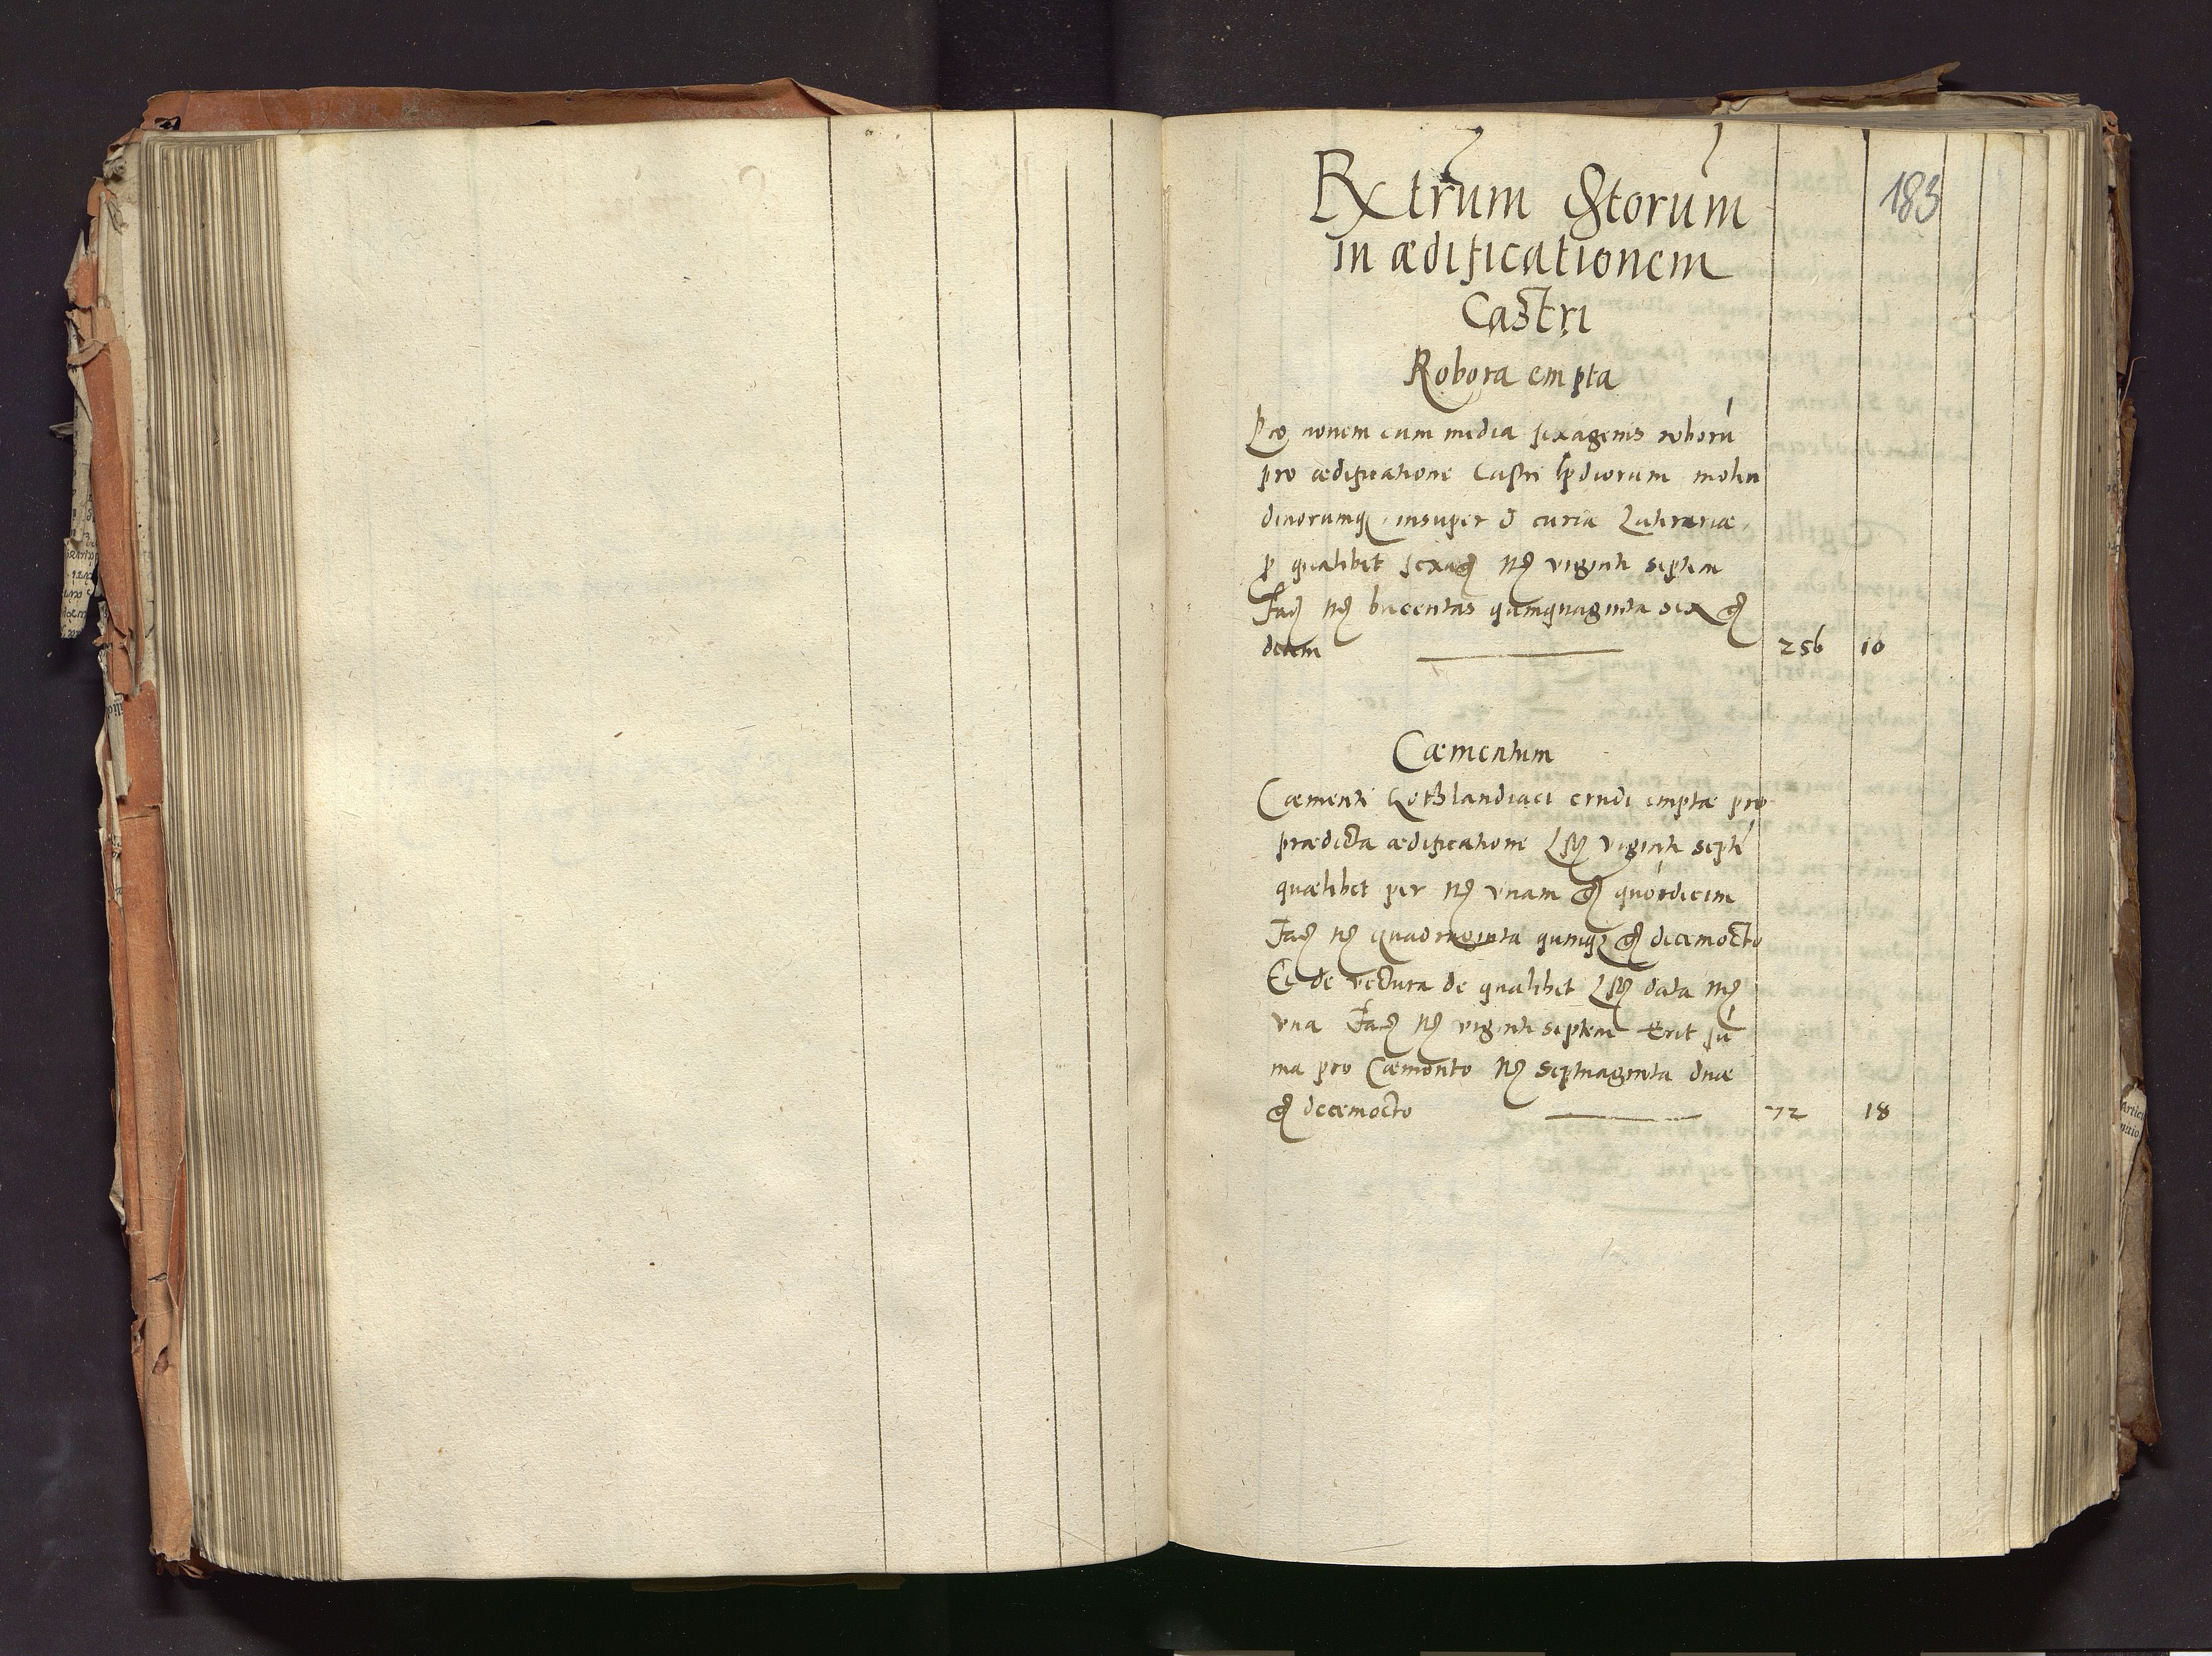 183
Extrum Extorum
in ædificationem
Castri
Robora empta
Pro novem cum media sexagenis roborũ
pro ædificatione Castri prædiorum molen
dinorumq insuper & curia Lateraria
p qualibet sexag mg viginti septem
Fac mg ducentas quinquaginta sex gr
decem 256 10
Cæmentum
Cæmenti Gothlandiaci crudi emptæ pro
prædicta ædificatione Last viginti septẽ
quælibet per mg vnam gr quordecim
Fac mg quadraginta quinq gr decemocto
Et de vectura de qualibet Last data mg
vna Fac mg viginti septem Erit sũ
ma pro Cæmento mg septuaginta duæ
gr decemocto 72 18